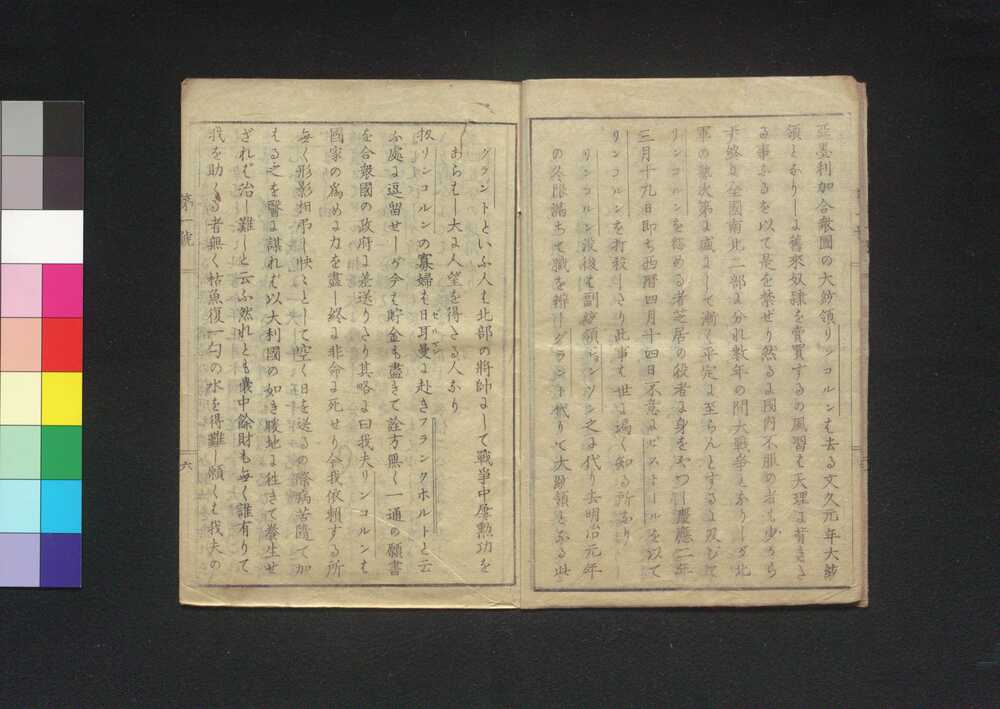 亞墨利加合衆國の大統領リンコルンは去る文久元年大統
領となりしに舊來奴隷を賣買するの風習は天理に背きた
る事なるを以て是を禁ぜり然るに國内不服の者も少からず
終に全國南北二部に分れ數年の間大戰爭となりしが北
軍の勢次第に盛にして漸く平定に至らんとするに及びて
リンコルンを怨める者芝居の役者に身をやつし慶應二年
三月十九日即ち西暦四月十四日不意にピストールを以て
リンコルンを打殺したり此事は世に遍く知る所なり
リンコルン沒後は副統領ヂョンソン之に代り去明治元年
の冬限滿ちて職を辭しグラント代りて大統領となる此
グラントといふ人は北部の將帥にして戰爭中屡勲功を
あらはし大に人望を得たる人なり
扨リンコルンの寡婦は日耳曼に赴きフランクホルトと云
ゼルマン
ふ處に逗留せしが今は貯金も盡きて詮方無く一通の願書
を合衆國の政府に差送りたり其略に曰我夫リンコルンは
國家の爲めに力を盡し終に非命に死せり今我依頼する所
無く形影相弔し怏々として空く日を送るの際病苦隨て加
はる之を醫に謀れば以太利國の如き暖地に往きて養生せ
ざれば治し難しと云ふ然れとも嚢中餘財も無く誰有りて
我を助くる者無く枯魚復一勺の水を得難し願くは我夫の
第一號
六